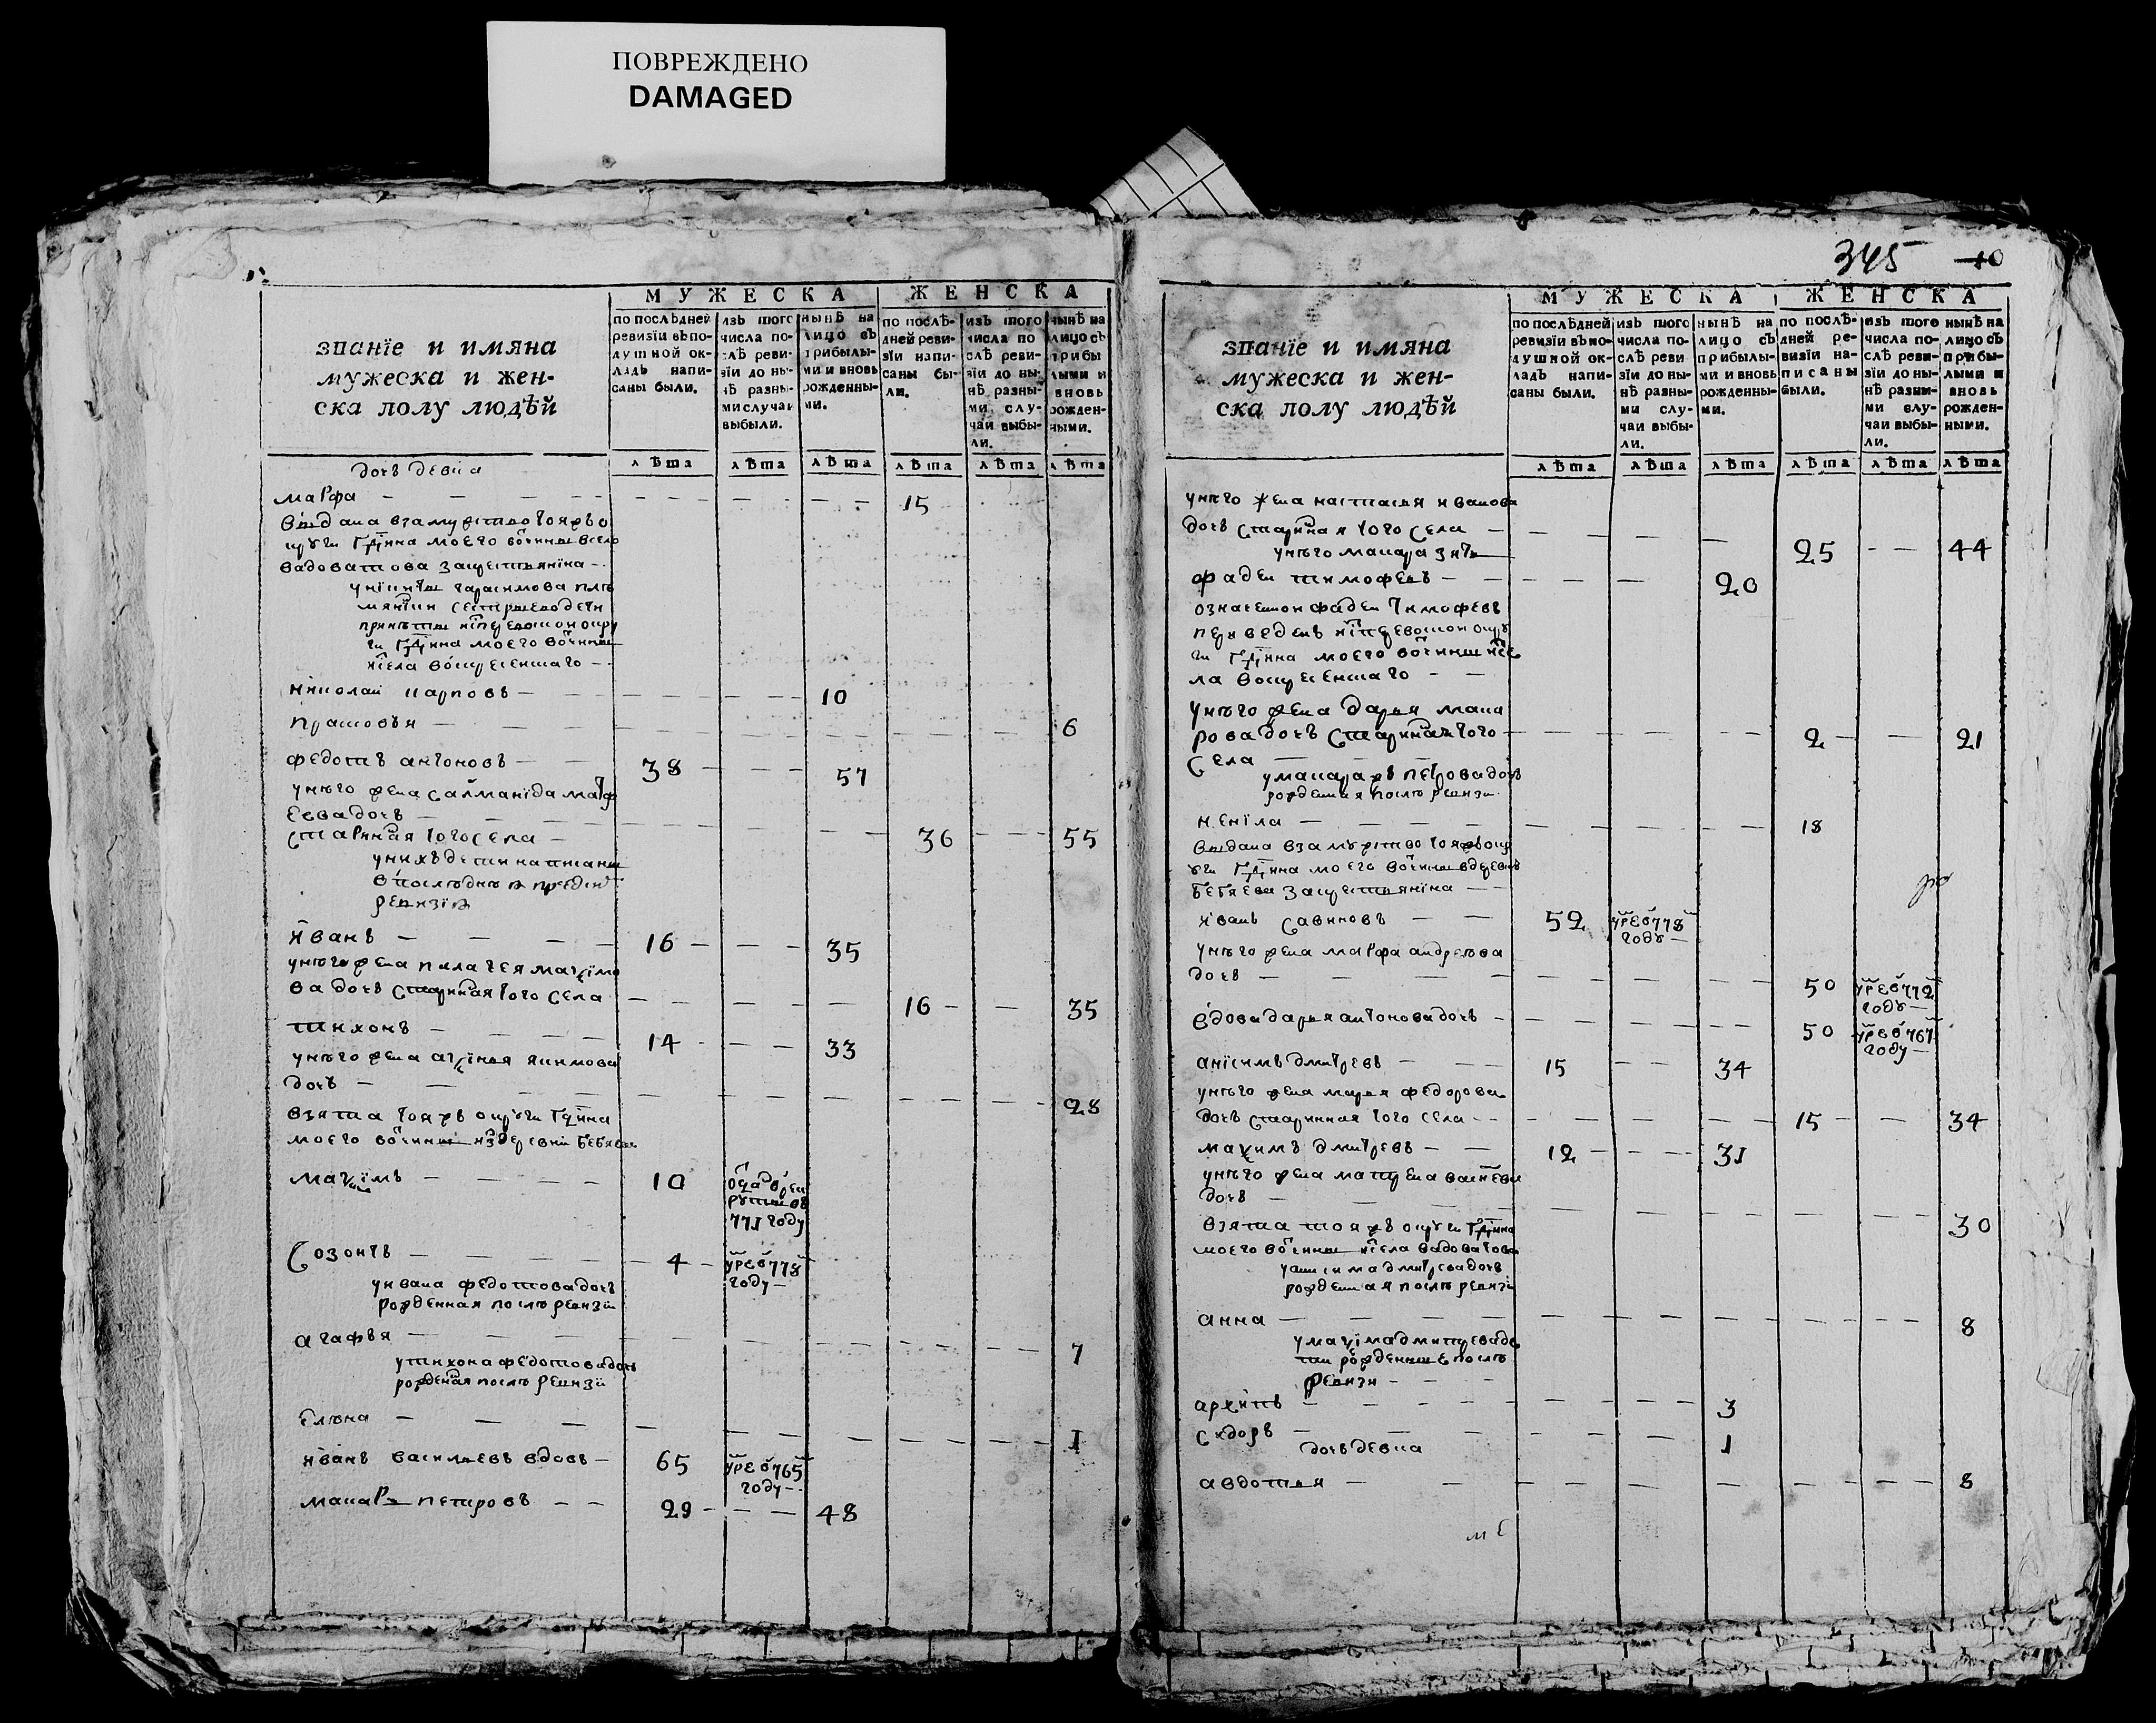 ПОВРЕЖДЕНО
DAMAGED
МУЖЕСКА ЖЕНСКА
званїе и имяна
мужеска и жен-
ска полу людѣй
по послѣдней
ревизїи въ по-
душной ок-
ладъ напи-
саны были.
изъ того
числа по-
слѣ реви-
зїи до ны-
нѣ разны-
ми случаи
выбыли.
нынѣ на
лицо съ
прибылы-
ми и вновь
рожденны-
ми.
по послѣ-
дней реви-
зїи напи-
саны бы-
ли.
изъ того
числа по
слѣ реви-
зїи до ны-
нѣ разны-
ми слу-
чаи выбы-
ли.
нынѣ на
лицо съ
прибы
лыми и
вновь
рожден-
ными.
лѣта лѣта лѣта лѣта лѣта лѣта
дочь девка
марфа 15
выдана взамужство тояжъ о
круги Гдина моего вотчины всело
вадоватова закрестьянина
николай карповъ 10
прасковья 6
федотъ антоновъ 38 57
унего жена салманїда матф
еева дочь
старинная того села 36 55
унихъ дети написаны
ревизїи
иванъ 16 35
унего жена пелагея маѯимо
ва дочь старинная того села 16 35
тихонъ 14 33
унего жена аѯинья якимова
дочь 28
взята тояжъ округи Гдина
моего вотчины издеревни бебяева
маѯимъ 10
771 году
созонтъ 4 умре в 778
году
уивана федотова дочь
рожденная после ревизїи
агафья 7
утихона федотова дочь
рожденая после ревизїи
елена 1
иванъ васильевъ вдовъ 65 умре в 765
году
макаръ петровъ 29 48
345 10
МУЖЕСКА ЖЕНСКА
званїе и имяна
мужеска и жен-
ска полу людѣй
по послѣдней
ревизїи въ по-
душной ок-
ладъ напи-
саны были.
изъ того
числа по-
слѣ реви
зїи до ны-
нѣ разны-
ми слу-
чаи выбы-
ли.
нынѣ на
лицо съ
прибылы-
ми и вновь
рожденны-
ми.
по послѣ-
дней ре-
визїи на-
писаны
были.
изъ того
числа по-
слѣ реви-
зїи до ны-
нѣ разны-
ми слу-
чаи выбы-
ли.
нынѣ на
лицо съ
прибы-
лыми и
вновь
рожден-
ными.
лѣта лѣта лѣта лѣта лѣта лѣта
унего жена настасья иванова
дочь старинная того села 25 44
унего макара зять
фадеи тимофеевъ 20
означенои фадеи тимофевъ
переведенъ
ги Гдина моего вотчины исе
ла воскресенскаго
унего жена дарья мака
рова дочь старинная того 2 21
села
умакара жъ петрова дочь
рожденная после ревизи
ненїла 18
выдана взамужство тояжъ окр
уги Гдина моего вотчины вдеревню
бебяева закрестьянина
иванъ савиновъ 52 умре в 778
году
унего жена марфа андреева
дочь 50 умре в 772
году
вдова дарья антонова дочь 50 умре в 767
году
анїсимъ дмитревъ 15 34
унего жена марья федорова
дочь старинная того села 15 34
маѯимъ дмитревъ 12 31
унего жена матрена
дочь 30
взята тояжъ округи Гдина
моего вотчины исела вадоватова
уанисима дмитрева дочь
рожденная после ревизїи
анна 8
умаѯима дмитрева де
ти рожденные после
ревизи
архипъ 3
сидоръ 1
дочь девка
авдотья 8